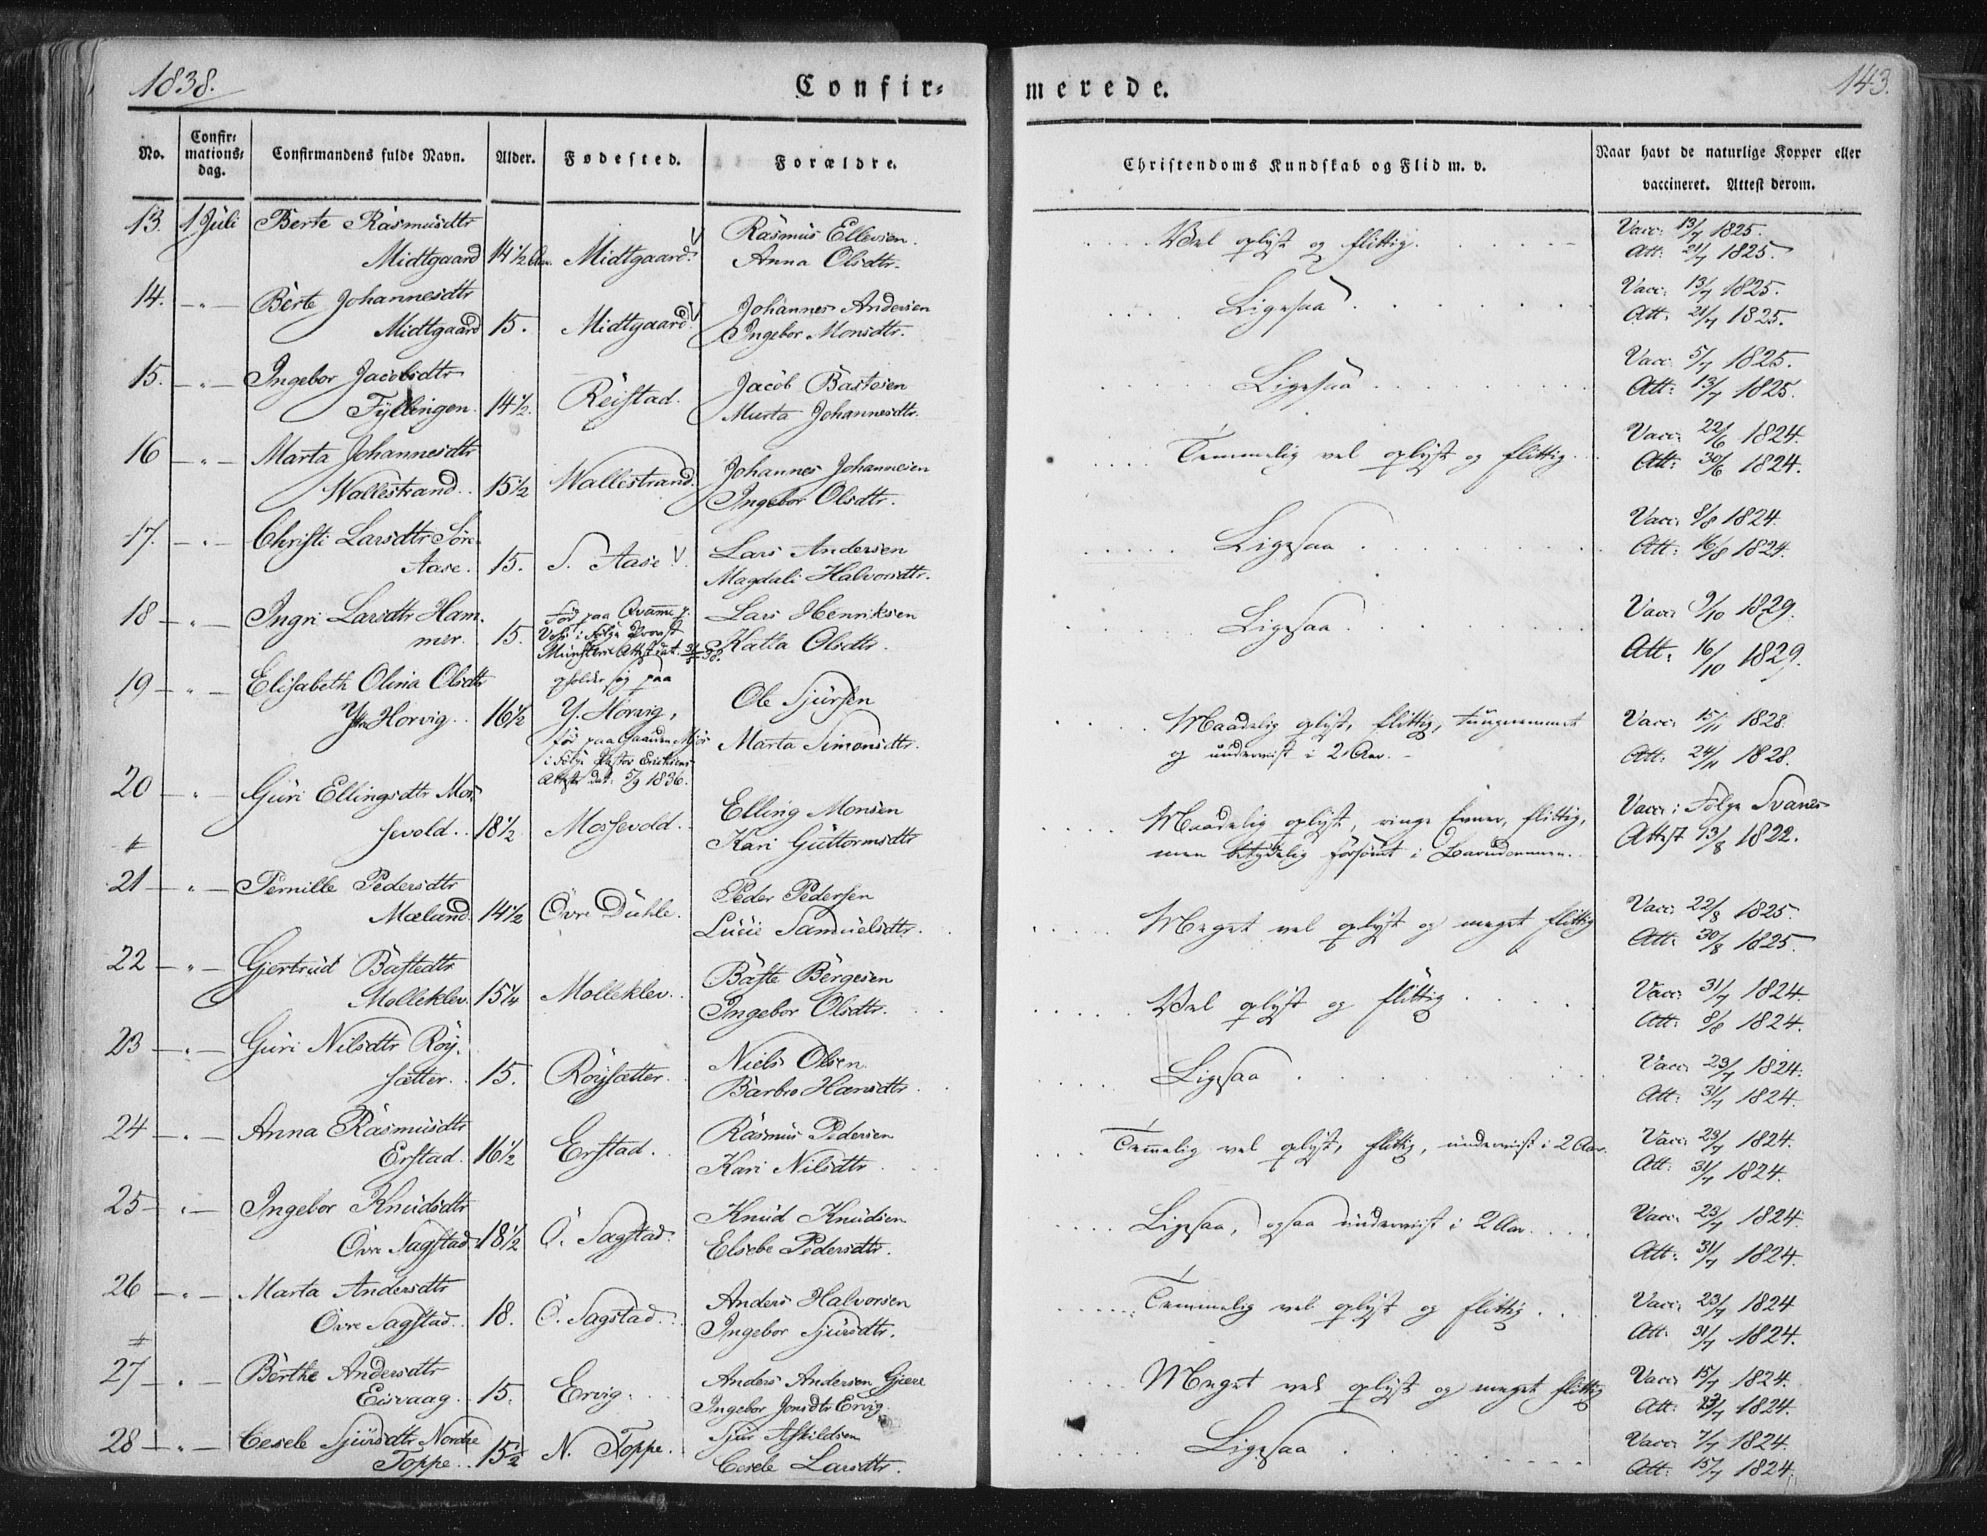 1838.
Confir= merede.
143.
No. Confir= mations= dag. Confirmandens fulde Navn. Alder. Fødested. Forældre. Christendoms Kundskab og Flid m. v. Naar havt de naturlige Kopper eller vaccineret. Attest derom.
13. 1 Juli Berte Rasmusdtr Rasmus Ellevsen. Vel oplyst og flittig. Vacc: 13/7 1825.
Midtgaard 14 1/2 Aar. Midtgaard. Anna Olsdtr. Att: 21/7 1825.
14. — „ — Berte Johannesdtr Johannes Andersen Ligesaa Vacc: 13/7 1825.
Midtgaard 15. Midtgaard. Ingebor Monsdtr. Att: 21/7 1825.
15. — „ — Ingebor Jacobsdtr Jacob Bastesen Ligesaa Vacc: 5/7 1825.
Fyllingen. 14 1/2. Reistad. Marta Johannesdtr. Att: 13/7 1825.
16 — „ — Marta Johannesdtr Johannes Johannesen Temmelig vel oplyst og flittig. Vacc: 22/6 1824.
Wallestrand. 15 1/2 Wallestrand. Ingebor Olsdtr. Att: 30/6 1824.
17. — „ — Christi Larsdtr Søre Lars Andersen Ligesaa Vacc: 8/8 1824.
Aase. 15. S. Aase. Magdali Halvorsdtr. Att: 16/8 1824.
18 — „ — Ingri Larsdtr Ham- Fød paa Qvamme p. Lars Henriksen Ligesaa Vacc: 9/10 1829.
mer. 15. Voss i Følge Provst Katla Olsdtr. Att: 16/10 1829.
Münsters Attest dat.
19 — „ — Elisabeth Olina Olsdtr opholder sig paa Ole Sjursen
Ytre Horvig. 16 1/2 Y. Horvig, Maadelig oplyst, flittig, tungnemmet Vacc: 15/11 1828.
fød paa Gaarden Mjør Marta Simonsdtr. og underviist i 2 Aar. Att: 24/11 1828.
i Følge Pastor Eriksens
Attest dat. 5/9 1836.
20 — „ — Guri Ellingsdtr Mos- Elling Monsen Maadelig oplyst, ringe Evner, flittig, Vacc: i Følge Svanes
sevold. 18 1/2 Mossevold. Kari Guttormsdtr men betydelig forsømt i Barndommen. Attest 13/8 1822.
21 — „ — Pernille Pedersdtr Peder Pedersen Meget vel oplyst og meget flittig Vacc: 22/8 1825.
Mæland. 14 1/2 Øvre Duhle. Lucie Samuelsdtr. Att: 30/8 1825.
22 — „ — Gjertrud Bastedtr Baste Børgesen Vel oplyst og flittig Vacc: 31/7 1824.
Molleklev. 15 1/4 Molleklev. Ingebor Olsdtr. Att: 8/8 1824.
23 — „ — Guri Nilsdtr Röy- Niels Olsen Ligesaa Vacc: 23/7 1824.
sætter. 15. Röysætter. Barbro Hansdtr Att: 31/7 1824.
24 — „ — Anna Rasmusdtr Rasmus Pedersen Temelig vel oplyst, flittig, underviist i 2 Aar. Vacc: 23/7 1824.
Erstad. 16 1/2 Erstad. Kari Nilsdtr Att: 31/7 1824.
25 — „ — Ingebor Knudsdtr Knud Knudsen Ligesaa, ogsaa underviist i 2 Aar. Vacc: 23/7 1824.
Övre Sagstad. 18 1/2 Ö. Sagstad. Elsebe Pedersdtr. Att: 31/7 1824.
26 — „ — Marta Andersdtr Anders Halvorsen Temmelig vel oplyst og flittig Vacc: 23/7 1824
Övre Sagstad. 18. Ö. Sagstad. Ingebor Sjursdtr. Att: 31/7 1824.
27 — „ — Berthe Andersdtr Anders Andersen Gjere Meget vel oplyst og meget flittig Vacc: 15/7 1824.
Eisvaag. 15. Ervig. Ingebor Jonsdtr Ervig. Att: 23/7 1824.
28 — „ — Cesele Sjursdtr Nordre Sjur Askildsen Ligesaa Vacc: 7/7 1824.
Toppe. 15 1/2 N. Toppe. Cesele Larsdtr. Att: 15/7 1824.